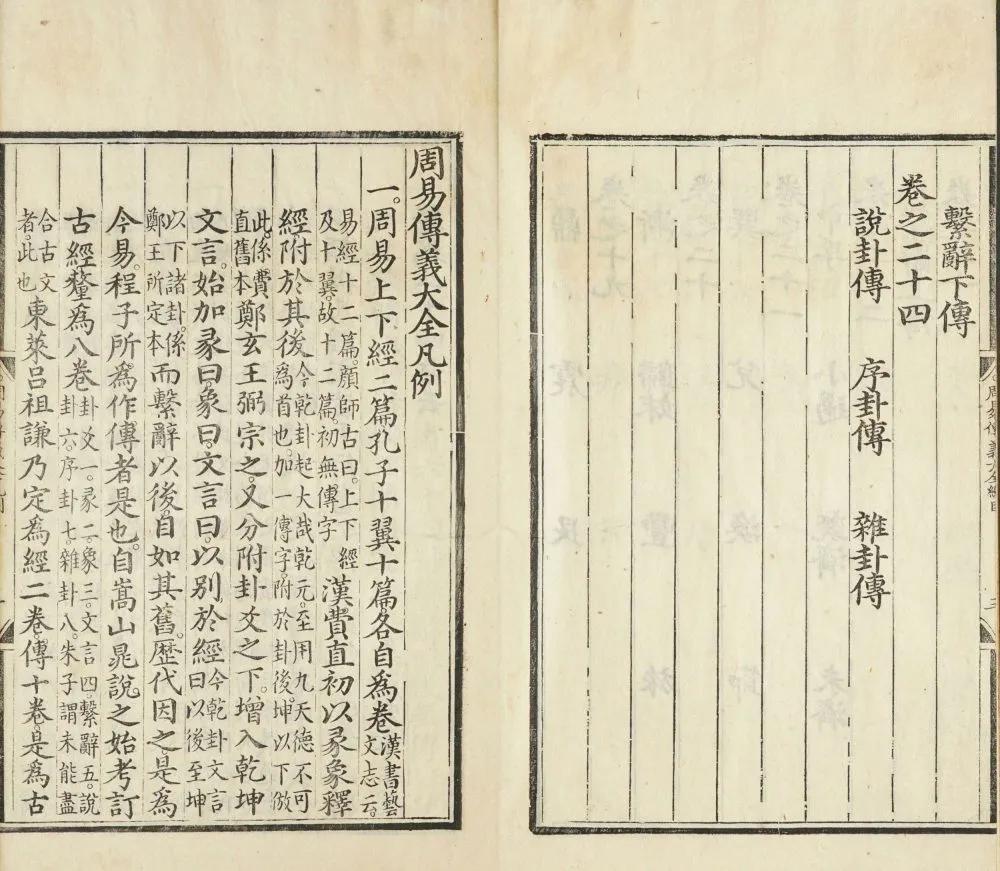 繫辭下傳
卷之二十四
說卦傳 序卦傳 雜卦傳
周易傳義大全總目
周易傳義大全凡例
一。周易上下經二篇孔子十翼十篇。各自為卷漢書藝文志云。
易經十二篇。顏師古曰。上下經及十翼。故十二篇。初無傳字漢費直初以彖象釋
經附於其後今乾卦起大哉乾元。至用九天德不可為首也。加一傳字。附於卦後。坤以下倣
此。係費直舊本鄭玄王弼宗之。又分附卦爻之下。增入乾坤
文言。始加彖曰。象曰。文言曰。以別於經今乾卦文言曰以後至坤
以下諸卦。係鄭王所定本而繫辭以後。自如其舊。歷代因之。是為
今易。程子所為作傳者是也。自嵩山晁說之始考訂
古經釐為八卷卦爻一。彖二。象三。文言四。繫辭五。說卦六。序卦七。雜卦八。朱子謂未能盡
合古文者。此也東萊呂祖謙乃定為經二卷。傳十卷。是為古